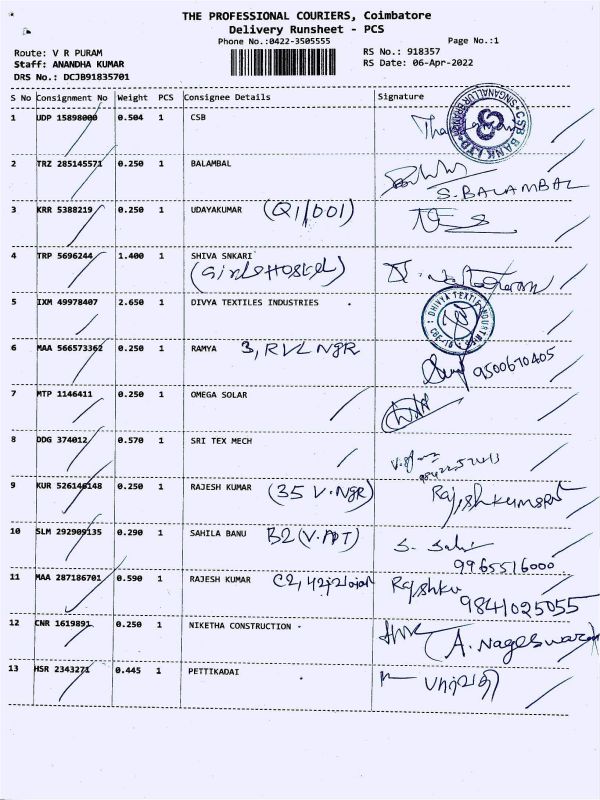 THE PROFESSIONAL COURIERS, Coimbatore
Delivery Runsheet - PCS
Phone No.:0422-3505555
Page No.:1
Route: V R PURAM
RS No.: 918357
Staff: ANANDHA KUMAR
RS Date: 06-Apr-2022
DRS No.: DCJB91835701
S No Consignment No Weight PCS Consignee Details Signature
1 UDP 15898000 0.504 1 CSB
CSB BANK LTD SINGANALLUR BRANCH
2 TRZ 285145571 0.250 1 BALAMBAL
S. BALAMBAL
3 KRR 5388219 0.250 1 UDAYAKUMAR (Q1/001)
4 TRP 5696244 1.400 1 SHIVA SNKARI
(Girls Hostel)
5 IXM 49978407 2.650 1 DIVYA TEXTILES INDUSTRIES
6 MAA 566573362 0.250 1 RAMYA 3, RVL NGR
9500670405
7 MTP 1146411 0.250 1 OMEGA SOLAR
8 DDG 374012 0.570 1 SRI TEX MECH
9 KUR 526146148 0.250 1 RAJESH KUMAR (35 V.NgR)
10 SLM 292909135 0.290 1 SAHILA BANU B2 (V.APT)
9965516000
11 MAA 287186701 0.590 1 RAJESH KUMAR C2,
9841025055
12 CNR 1619891 0.250 1 NIKETHA CONSTRUCTION
A. Nageswaran
13 HSR 2343271 0.445 1 PETTIKADAI